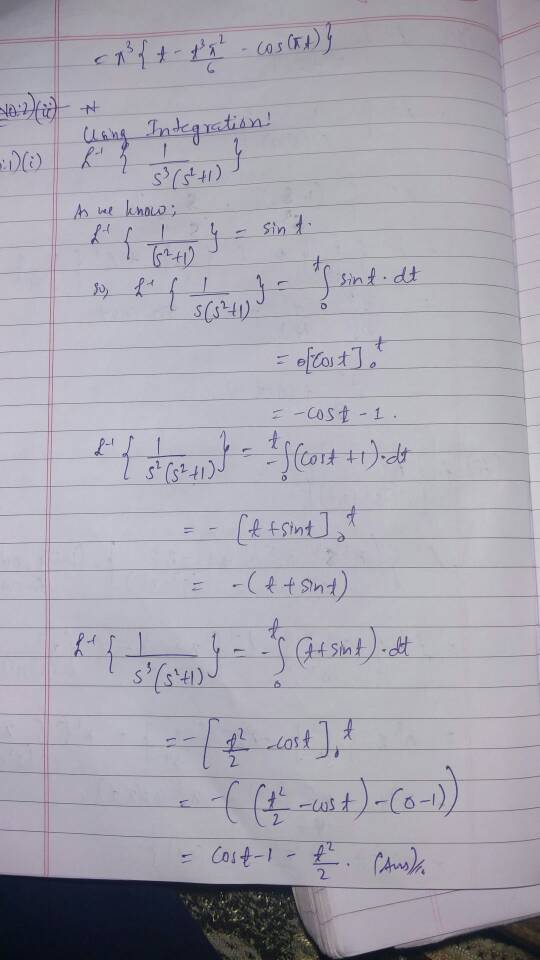 = π³ { t - t³π²/6 - cos(πt) }
No:2)(ii)
Using Integration:
:1)(i) L⁻¹ { 1/(s³(s²+1)) }
As we know;
L⁻¹ { 1/(s²+1) } = sin t.
so, L⁻¹ { 1/(s(s²+1)) } = ∫₀ᵗ sin t · dt
= [-cos t]₀ᵗ
= -cos t - 1.
L⁻¹ { 1/(s²(s²+1)) } = -∫₀ᵗ (cos t + 1) · dt
= - [t + sin t]₀ᵗ
= -(t + sin t)
L⁻¹ { 1/(s³(s²+1)) } = -∫₀ᵗ (t + sin t) · dt
= - [t²/2 - cos t]₀ᵗ
= -((t²/2 - cos t) - (0 - 1))
= cos t - 1 - t²/2. (Ans)//.